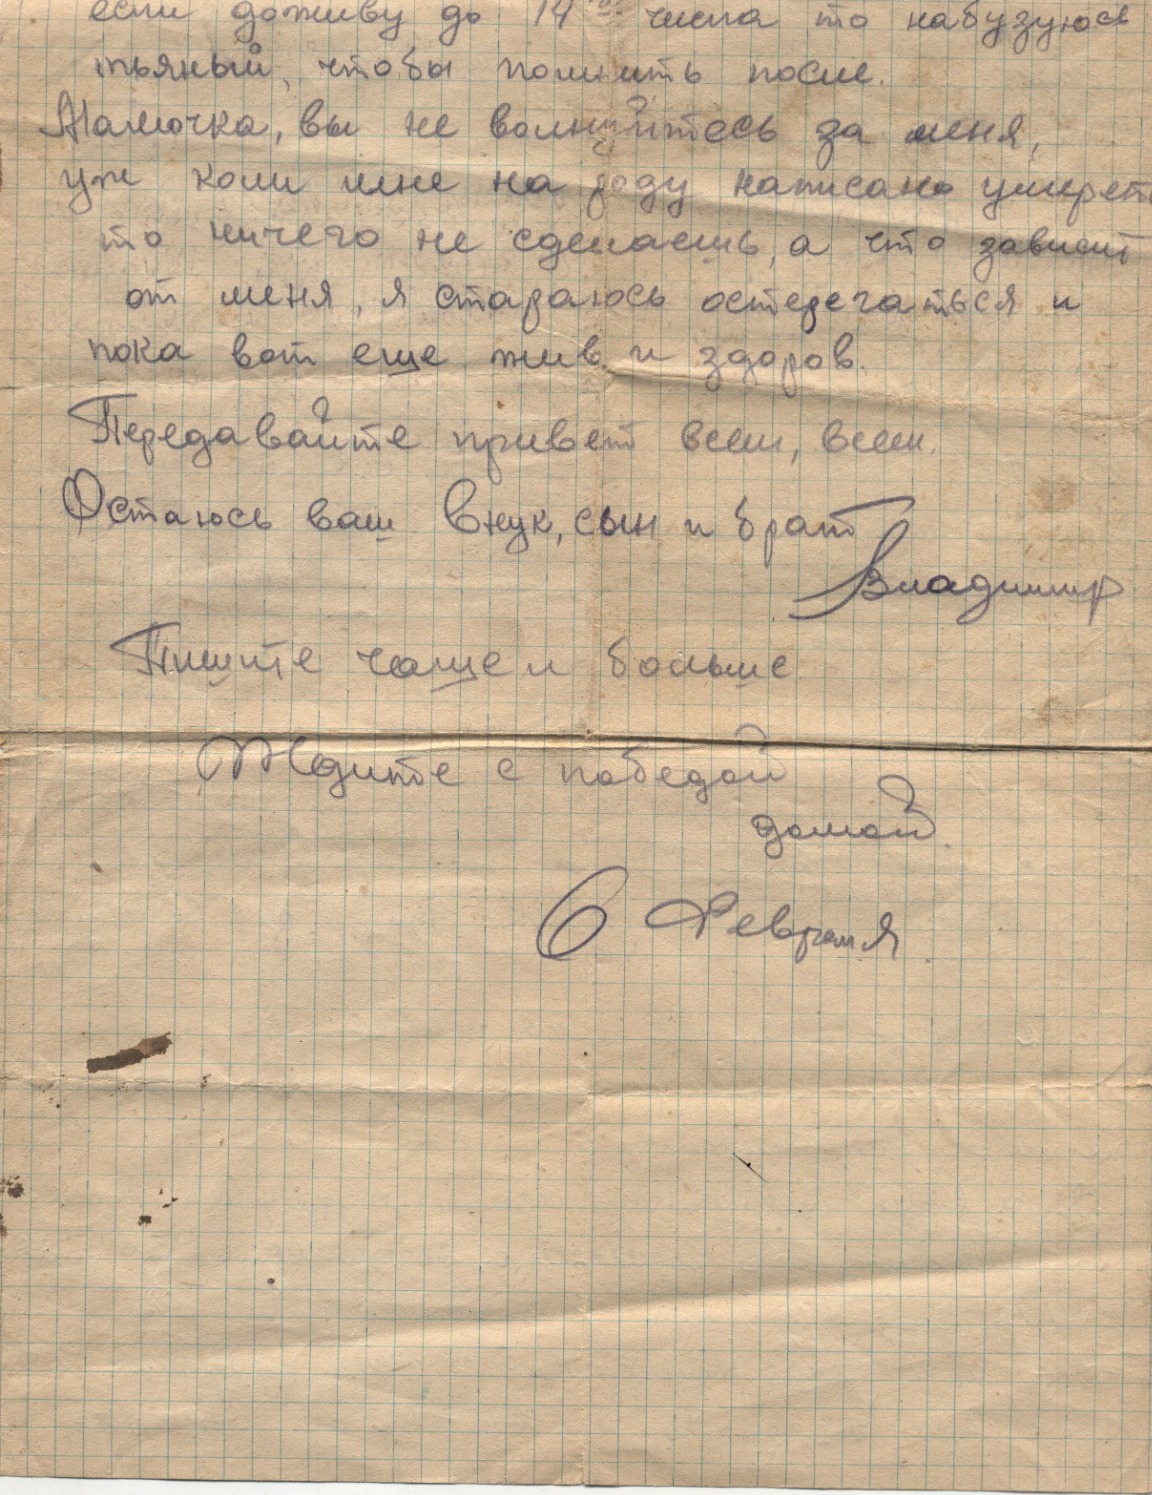 если доживу до 14го числа то набузуюсь
пьяный, чтобы помнить после.
Мамочка, вы не волнуйтесь за меня,
уж коли мне на роду написано умереть
то ничего не сделаешь, а что зависит
от меня, я стараюсь остерегаться и
пока вот еще жив и здоров.
Передавайте привет всем, всем.
Остаюсь ваш Внук, сын и брат
Владимир
Пишите чаще и больше
Ждите с победой
домой.
6 Февраля.